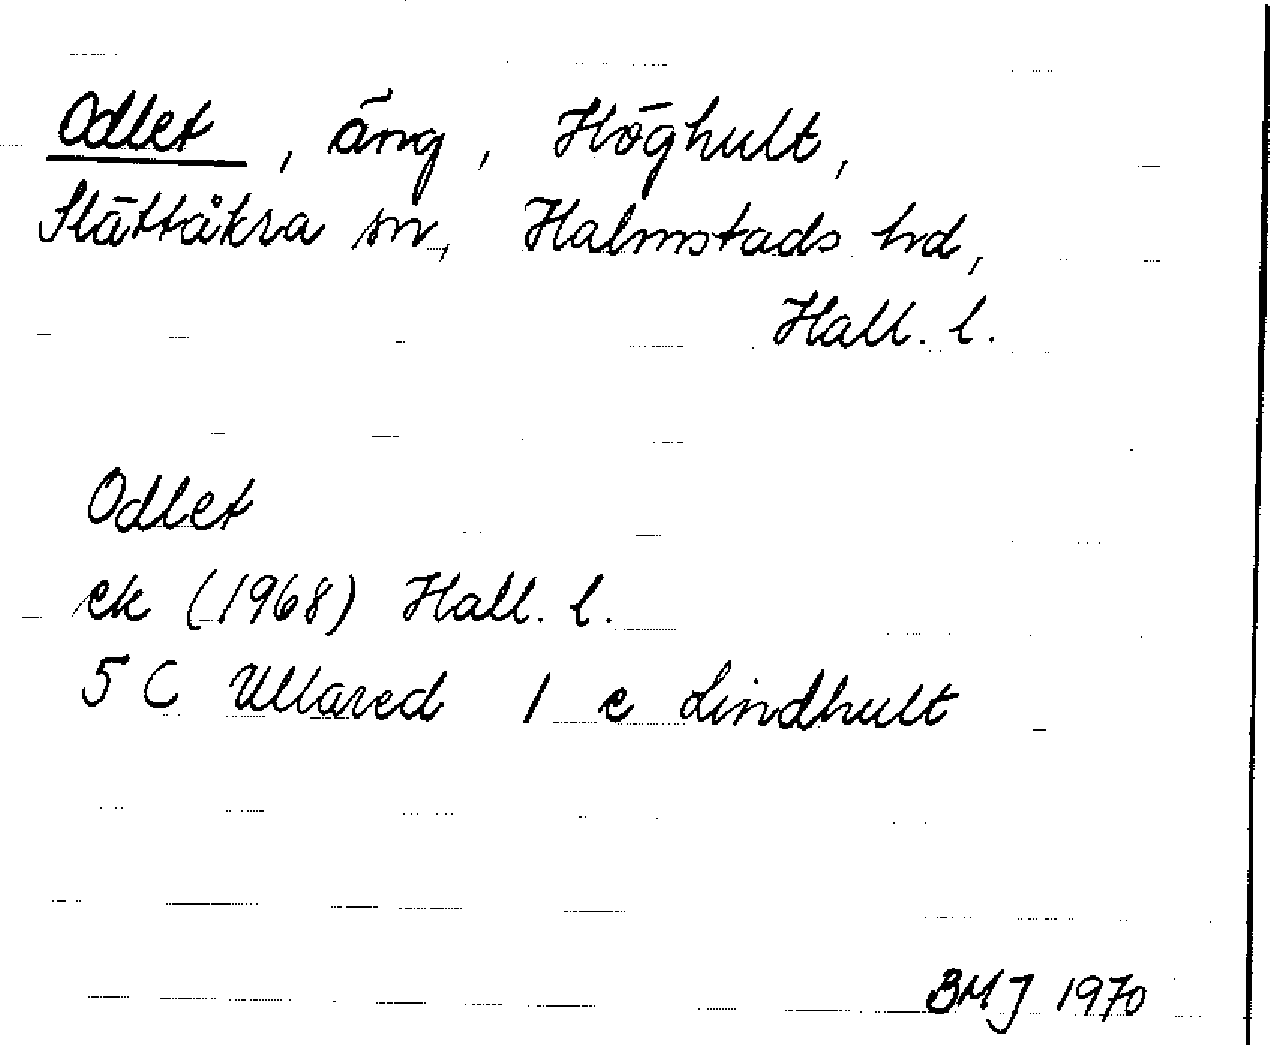 Odlet, äng, Höghult,
Slättåkra sn, Halmstads hd,
Hall. l.
Odlet
ek (1968) Hall. l.
5 C Ullared 1 e Lindhult
BMJ 1970